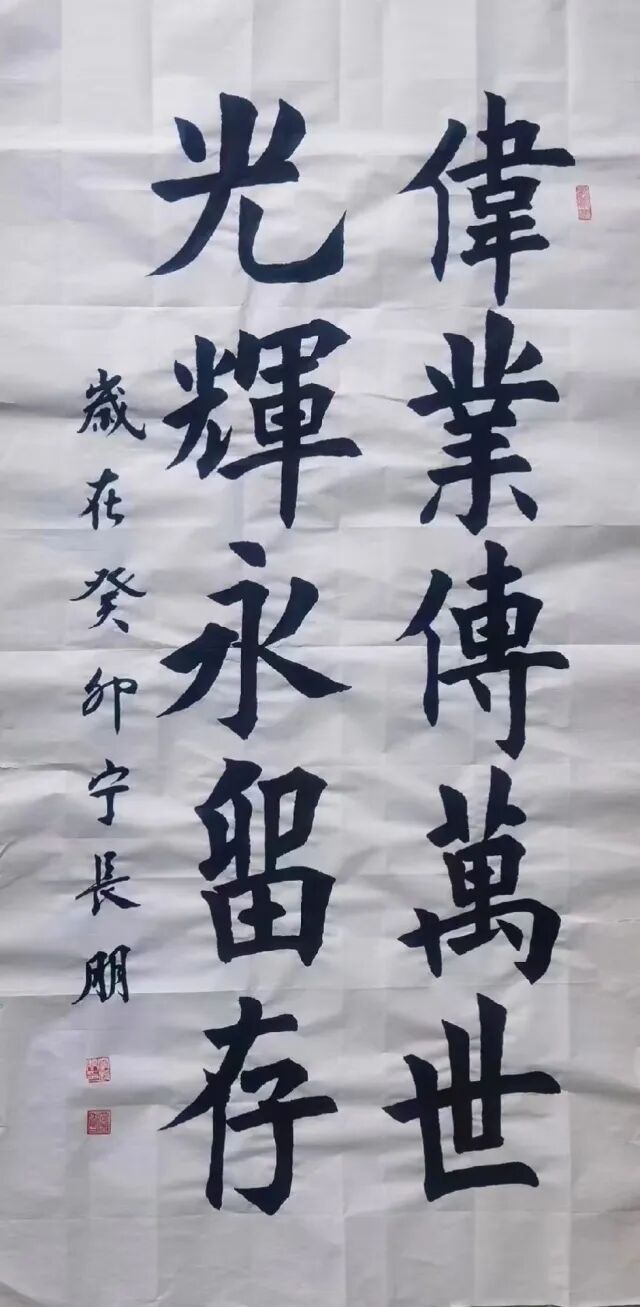 偉業傳萬世
光輝永留存
歲在癸卯宁長朋